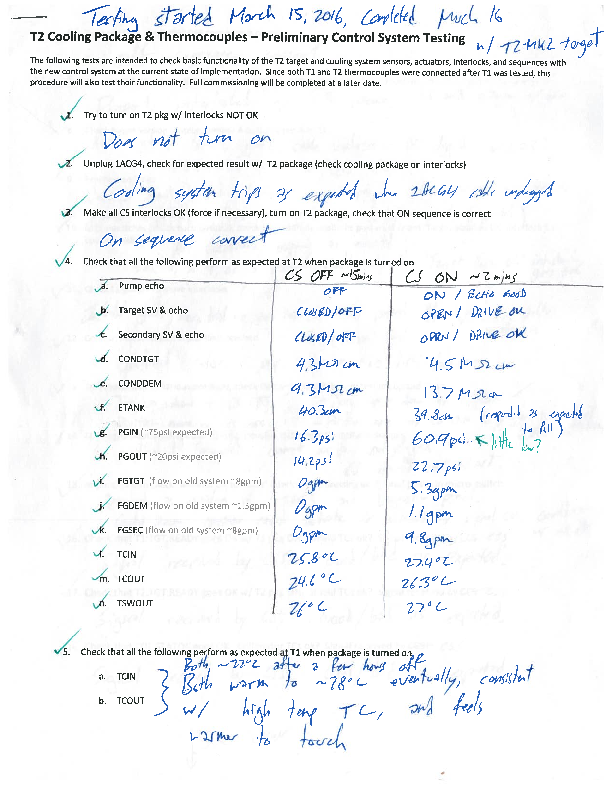 Testing started March 15, 2016, Completed March 16
w/ T2-MK2 target
T2 Cooling Package & Thermocouples – Preliminary Control System Testing
The following tests are intended to check basic functionality of the T2 target and cooling system sensors, actuators, interlocks, and sequences with
the new control system at the current state of implementation. Since both T1 and T2 thermocouples were connected after T1 was tested, this
procedure will also test their functionality. Full commissioning will be completed at a later date.
1. Try to turn on T2 pkg w/ interlocks NOT OK
Does not turn on
2. Unplug 1ACG4, check for expected result w/ T2 package (check cooling package or interlocks)
Cooling system trips as expected when cable unplugged
3. Make all CS interlocks OK (force if necessary), turn on T2 package, check that ON sequence is correct
On sequence correct
4. Check that all the following perform as expected at T2 when package is turned on
CS OFF ~15mins CS ON ~2mins
a. Pump echo OFF ON / Echo Good
b. Target SV & echo CLOSED/OFF OPEN / DRIVE OK
c. Secondary SV & echo CLOSED/OFF OPEN / DRIVE OK
d. CONDTGT 4.3MΩcm 4.5MΩcm
e. CONDDEM 9.3MΩcm 13.7MΩcm
f. ETANK 40.3cm 39.8cm (responds as expected to fill)
g. PGIN (~75psi expected) 16.3psi 60.9psi ← little low?
h. PGOUT (~20psi expected) 14.2psi 22.7psi
i. FGTGT (flow on old system ~8gpm) 0gpm 5.3gpm
j. FGDEM (flow on old system ~1.5gpm) 0gpm 1.1gpm
k. FGSEC (flow on old system ~8gpm) 0gpm 9.8gpm
l. TCIN 25.8°C 27.4°C
m. TCOUT 24.6°C 26.3°C
n. TSWOUT 26°C 27°C
5. Check that all the following perform as expected at T1 when package is turned on
Both ~22°C after a few hours off
a. TCIN Both warm to ~28°C eventually, consistent
b. TCOUT w/ high temp TC, and feels
warmer to touch